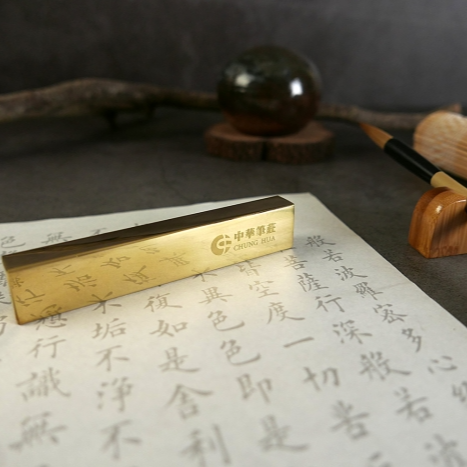 中華筆莊
CHUNG HUA
般若波羅蜜多心經
菩薩行深般若
皆空度一切苦
不異色色即是
復如是舍利
不垢不淨不
想行識無